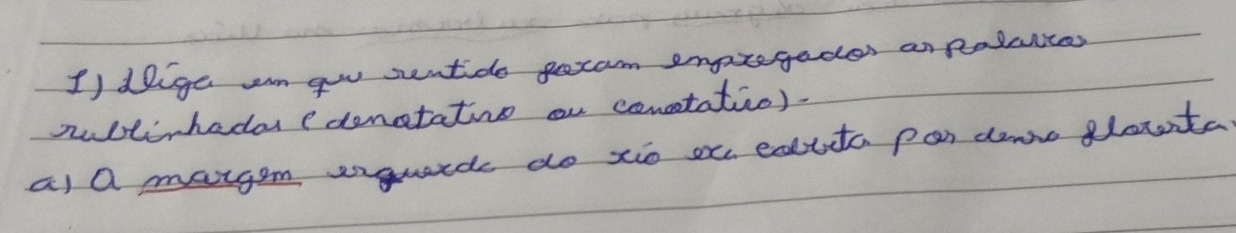 1) Diga em que sentido foram empregados as palavras
sublinhadas (denotativo ou conotativo).
a) A margem esquerda do rio era coberta por densa floresta.